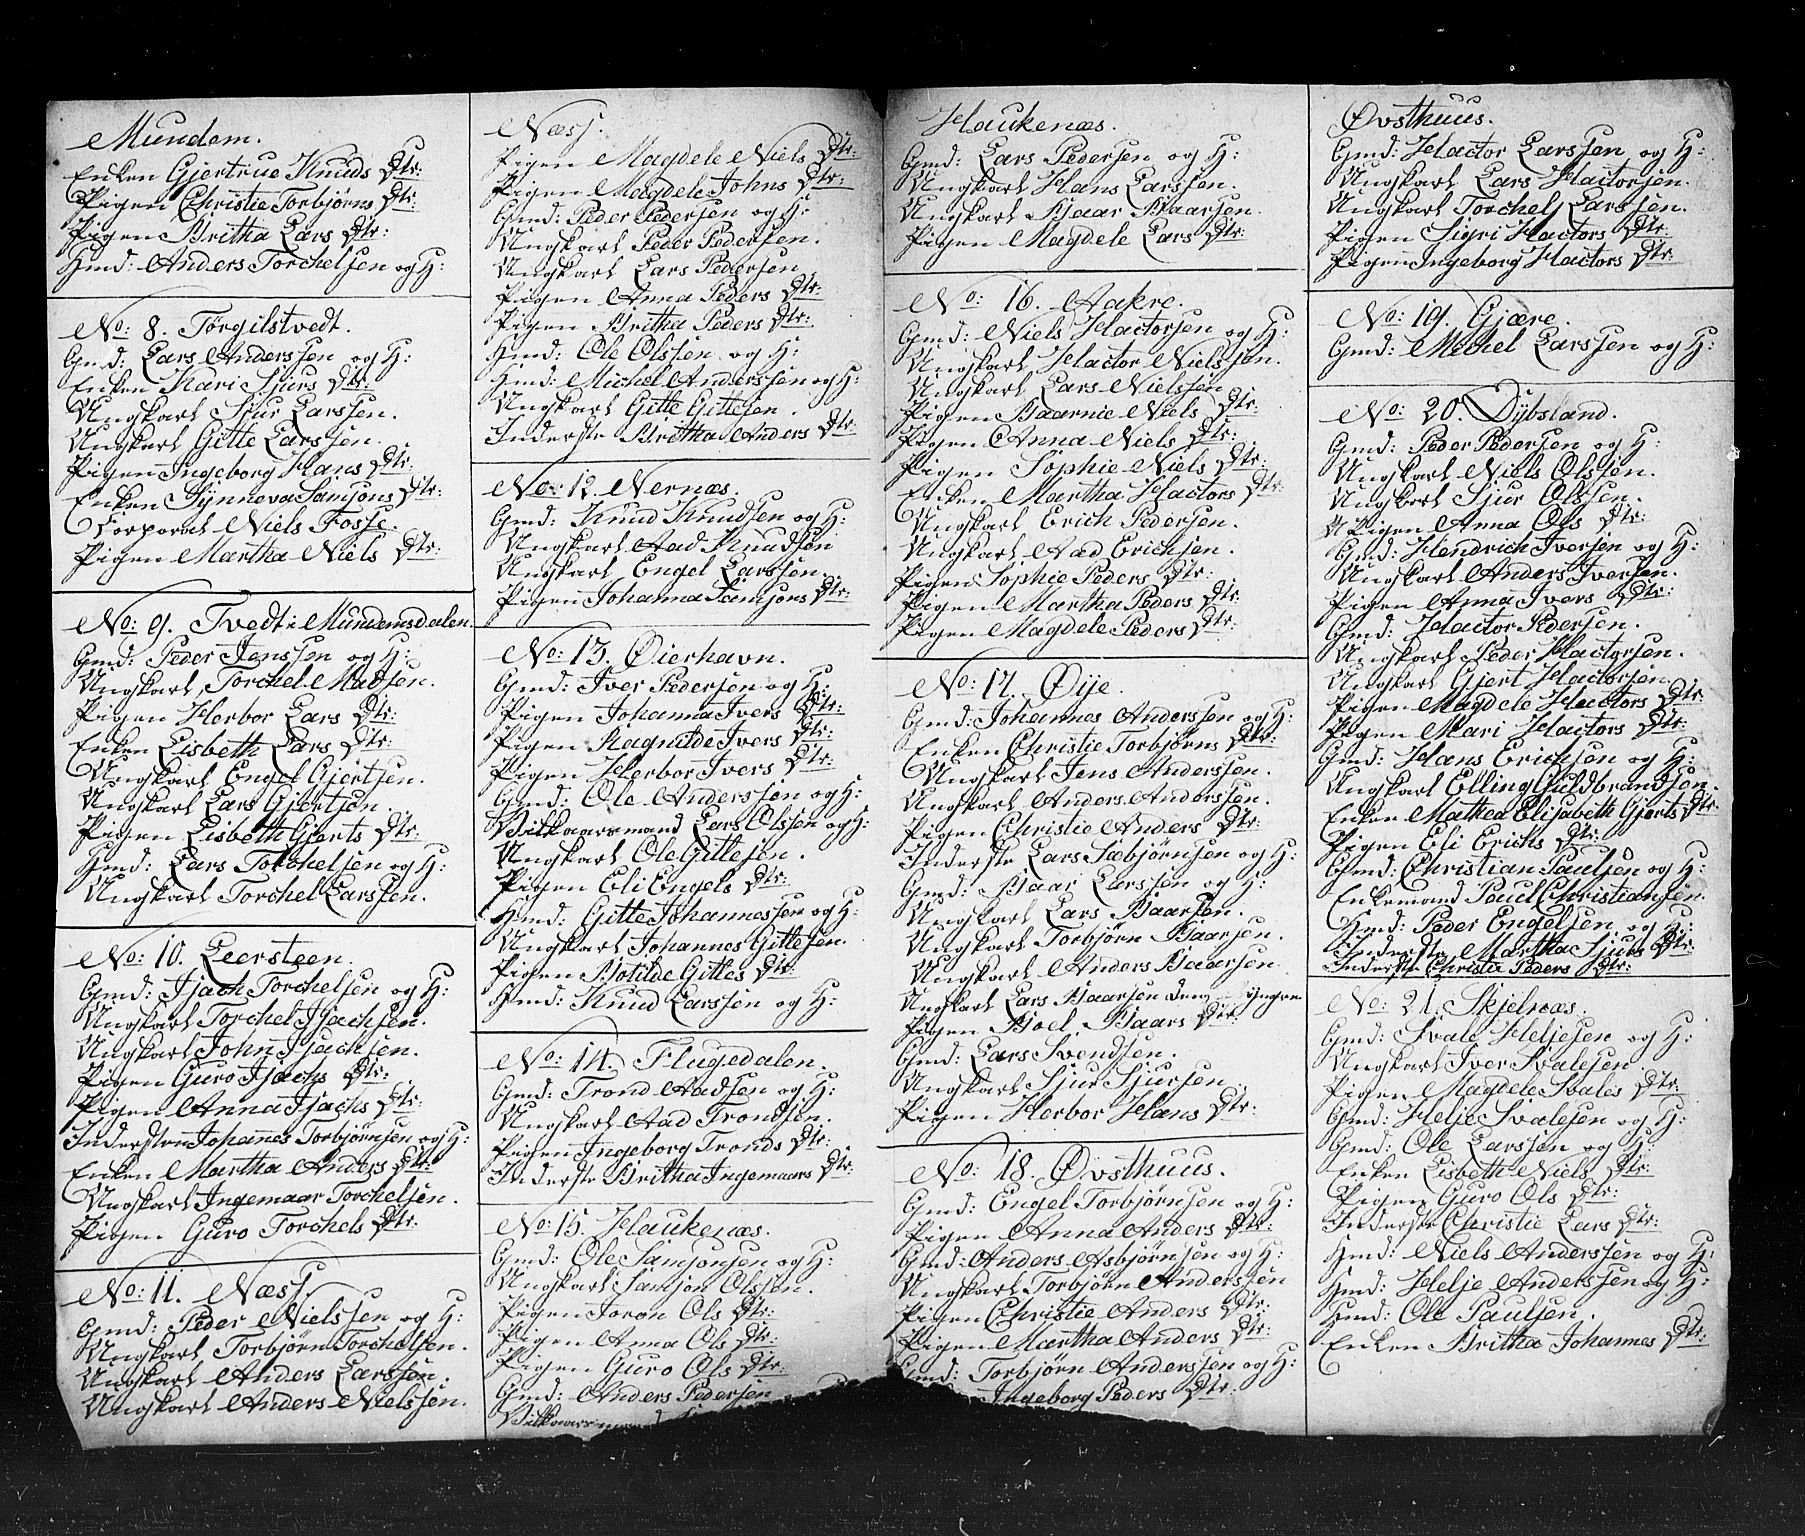 Mundem.
Enken Gjertrue Knuds Dtr:
Pigen Christie Torbjørns Dtr:
Pigen Britha Lars Dtr:
Hmd: Anders Torchelsen og H:
No: 8. Torgilstvedt.
Gmd: Lars Anderssen og H:
Enken Kari Sjurs Dtr:
Ungkarl Sjur Larssen.
Ungkarl Gitte Larssen.
Pigen Ingeborg Hans Dtr:
Enken Synneva Samsons Dtr:
Corporal Niels Fosse.
Pigen Martha Niels Dtr:
No: 9. Tvedt i Mundemsdalen
Gmd: Peder Jenssen og H:
Ungkarl Torchel Madsen.
Pigen Herbor Lars Dtr:
Enken Lisbeth Lars Dtr:
Ungkarl Engel Gjertsen.
Ungkarl Lars Gjertsen.
Pigen Lisbeth Gjerts Dtr:
Hmd: Lars Torchelsen og H:
Ungkarl Torchel Larssen.
No: 10. Leersteen.
Gmd: Isach Torchelsen og H:
Ungkarl Torchel Isachsen.
Ungkarl John Isachsen.
Pigen Guro Isachs Dtr:
Pigen Anna Isachs Dtr:
Inderstен Johannes Torbjørnsen og H:
Enken Martha Anders Dtr:
Ungkarl Ingemaar Torchelsen.
Pigen Guro Torchels Dtr:
No: 11. Næss.
Gmd: Peder Nielssen og H:
Ungkarl Torbjørn Torchelsen.
Ungkarl Anders Larssen.
Ungkarl Anders Nielssen.
Næss.
Pigen Magdele Niels Dtr:
Pigen Magdele Johns Dtr:
Gmd: Peder Pedersen og H:
Ungkarl Peder Pedersen.
Ungkarl Lars Pedersen
Pigen Anna Peders Dtr:
Pigen Britha Peders Dtr:
Hmd: Ole Olssen og H:
Hmd: Michel Anderssen og H:
Ungkarl Gitte Gittesen.
Inderste Britha Anders Dtr:
No: 12. Nernæs.
Gmd: Knud Knudsen og H:
Ungkarl Aad Knudsen
Ungkarl Engel Larssen.
Pigen Johanna Samsons Dtr:
No: 13. Øierhavn.
Gmd: Iver Pedersen og H:
Pigen Johanna Ivers Dtr:
Pigen Ragnilde Ivers Dtr:
Pigen Herbor Ivers Dtr:
Gmd: Ole Anderssen og H:
Vilkaarsmand Lars Olssen og H:
Ungkarl Ole Gittesen.
Pigen Eli Engels Dtr:
Hmd: Gitte Johannessen og H:
Ungkarl Johannes Gittesen.
Pigen Botilde Gittes Dtr:
Hmd: Knud Larssen og H:
No: 14. Flugedalen.
Gmd: Trond Aadsen og H:
Ungkarl Aad Trondsen.
Pigen Ingeborg Tronds Dtr:
Inderste Britha Ingemaars Dtr:
No: 15. Haukenæs.
Gmd: Ole Samsonsen og H:
Ungkarl Samson Olssen.
Pigen Joron Ols Dtr:
Pigen Anna Ols Dtr:
Pigen Guro Ols Dtr:
Gmd: Anders Pedersen
Vilkaarsmand
Haukenæs.
Gmd: Lars Pedersen og H:
Ungkarl Hans Larssen.
Ungkarl Baar Baarsen.
Pigen Magdele Lars Dtr:
No: 16. Aakre.
Gmd: Niels Hactorsen og H:
Ungkarl Hactor Nielssen.
Ungkarl Lars Nielssen
Pigen Baarnie Niels Dtr:
Pigen Anna Niels Dtr:
Pigen Sophie Niels Dtr:
Enken Martha Hactors Dtr:
Ungkarl Erich Pedersen.
Ungkarl Aad Erichsen.
Pigen Sophie Peders Dtr:
Pigen Martha Peders Dtr:
Pigen Magdele Peders Dtr:
No: 17. Øije.
Gmd: Johannes Anderssen og H:
Enken Christie Torbjørns Dtr:
Ungkarl Jens Anderssen.
Ungkarl Anders Anderssen.
Pigen Christie Anders Dtr:
Inderste Lars Sæbjørnsen og H:
Gmd: Baar Larssen og H:
Ungkarl Lars Baarsen.
Ungkarl Torbjørn Baarsen.
Ungkarl Anders Baarsen
Ungkarl Lars Baarsen den yngre
Pigen Boel Baars Dtr:
Gmd: Lars Svendsen.
Ungkarl Sjur Sjursen
Pigen Herbor Hans Dtr:
No: 18. Øvsthuus.
Gmd: Engel Torbjørnsen og H:
Pigen Anna Anders Dtr:
Gmd: Anders Asbjørnsen og H:
Ungkarl Torbjørn Anderssen
Pigen Christie Anders Dtr:
Pigen Martha Anders Dtr:
Gmd: Torbjørn Anderssen og H:
Ingeborg Peders Dtr:
Øvsthuus.
Gmd: Hactor Larssen og H:
Ungkarl Lars Hactorsen.
Ungkarl Torchel Larssen.
Pigen Sigri Hactors Dtr:
Pigen Ingeborg Hactors Dtr:
No: 19. Gjære.
Gmd: Michel Larssen og H:
No: 20. Dybsland.
Gmd: Peder Pedersen og H:
Ungkarl Niels Olssen.
Ungkarl Sjur Olssen.
Pigen Anna Ols Dtr:
Gmd: Hendrich Iversen og H:
Ungkarl Anders Iversen.
Pigen Anna Ivers Dtr:
Gmd: Hactor Pedersen.
Ungkarl Peder Hactorsen.
Ungkarl Gjert Hactorsen
Pigen Magdele Hactors Dtr:
Pigen Mari Hactors Dtr:
Gmd: Hans Erichsen og H:
Ungkarl Elling Guldbrandsen.
Enken Mathea Elisabeth Gjerts Dtr:
Pigen Eli Erichs Dtr:
Gmd: Christian Paulsen og H:
Enkemand Poul Christiansen.
Hmd: Peder Engelsen og H:
Inderste Martha Sjurs Dtr:
Inderste Christie Peders Dtr:
No: 21. Skjelnæs.
Gmd: Svale Heljesen og H:
Ungkarl Iver Svalesen.
Pigen Magdele Svales Dtr:
Gmd: Helje Svalesen og H:
Gmd: Ole Larssen og H:
Enken Lisbeth Niels Dtr:
Pigen Guro Ols Dtr:
Inderste Christie Lars Dtr:
Hmd: Niels Anderssen og H:
Hmd: Helje Anderssen og H:
Hmd: Ole Paulsen.
Enken Britha Johannes Dtr: